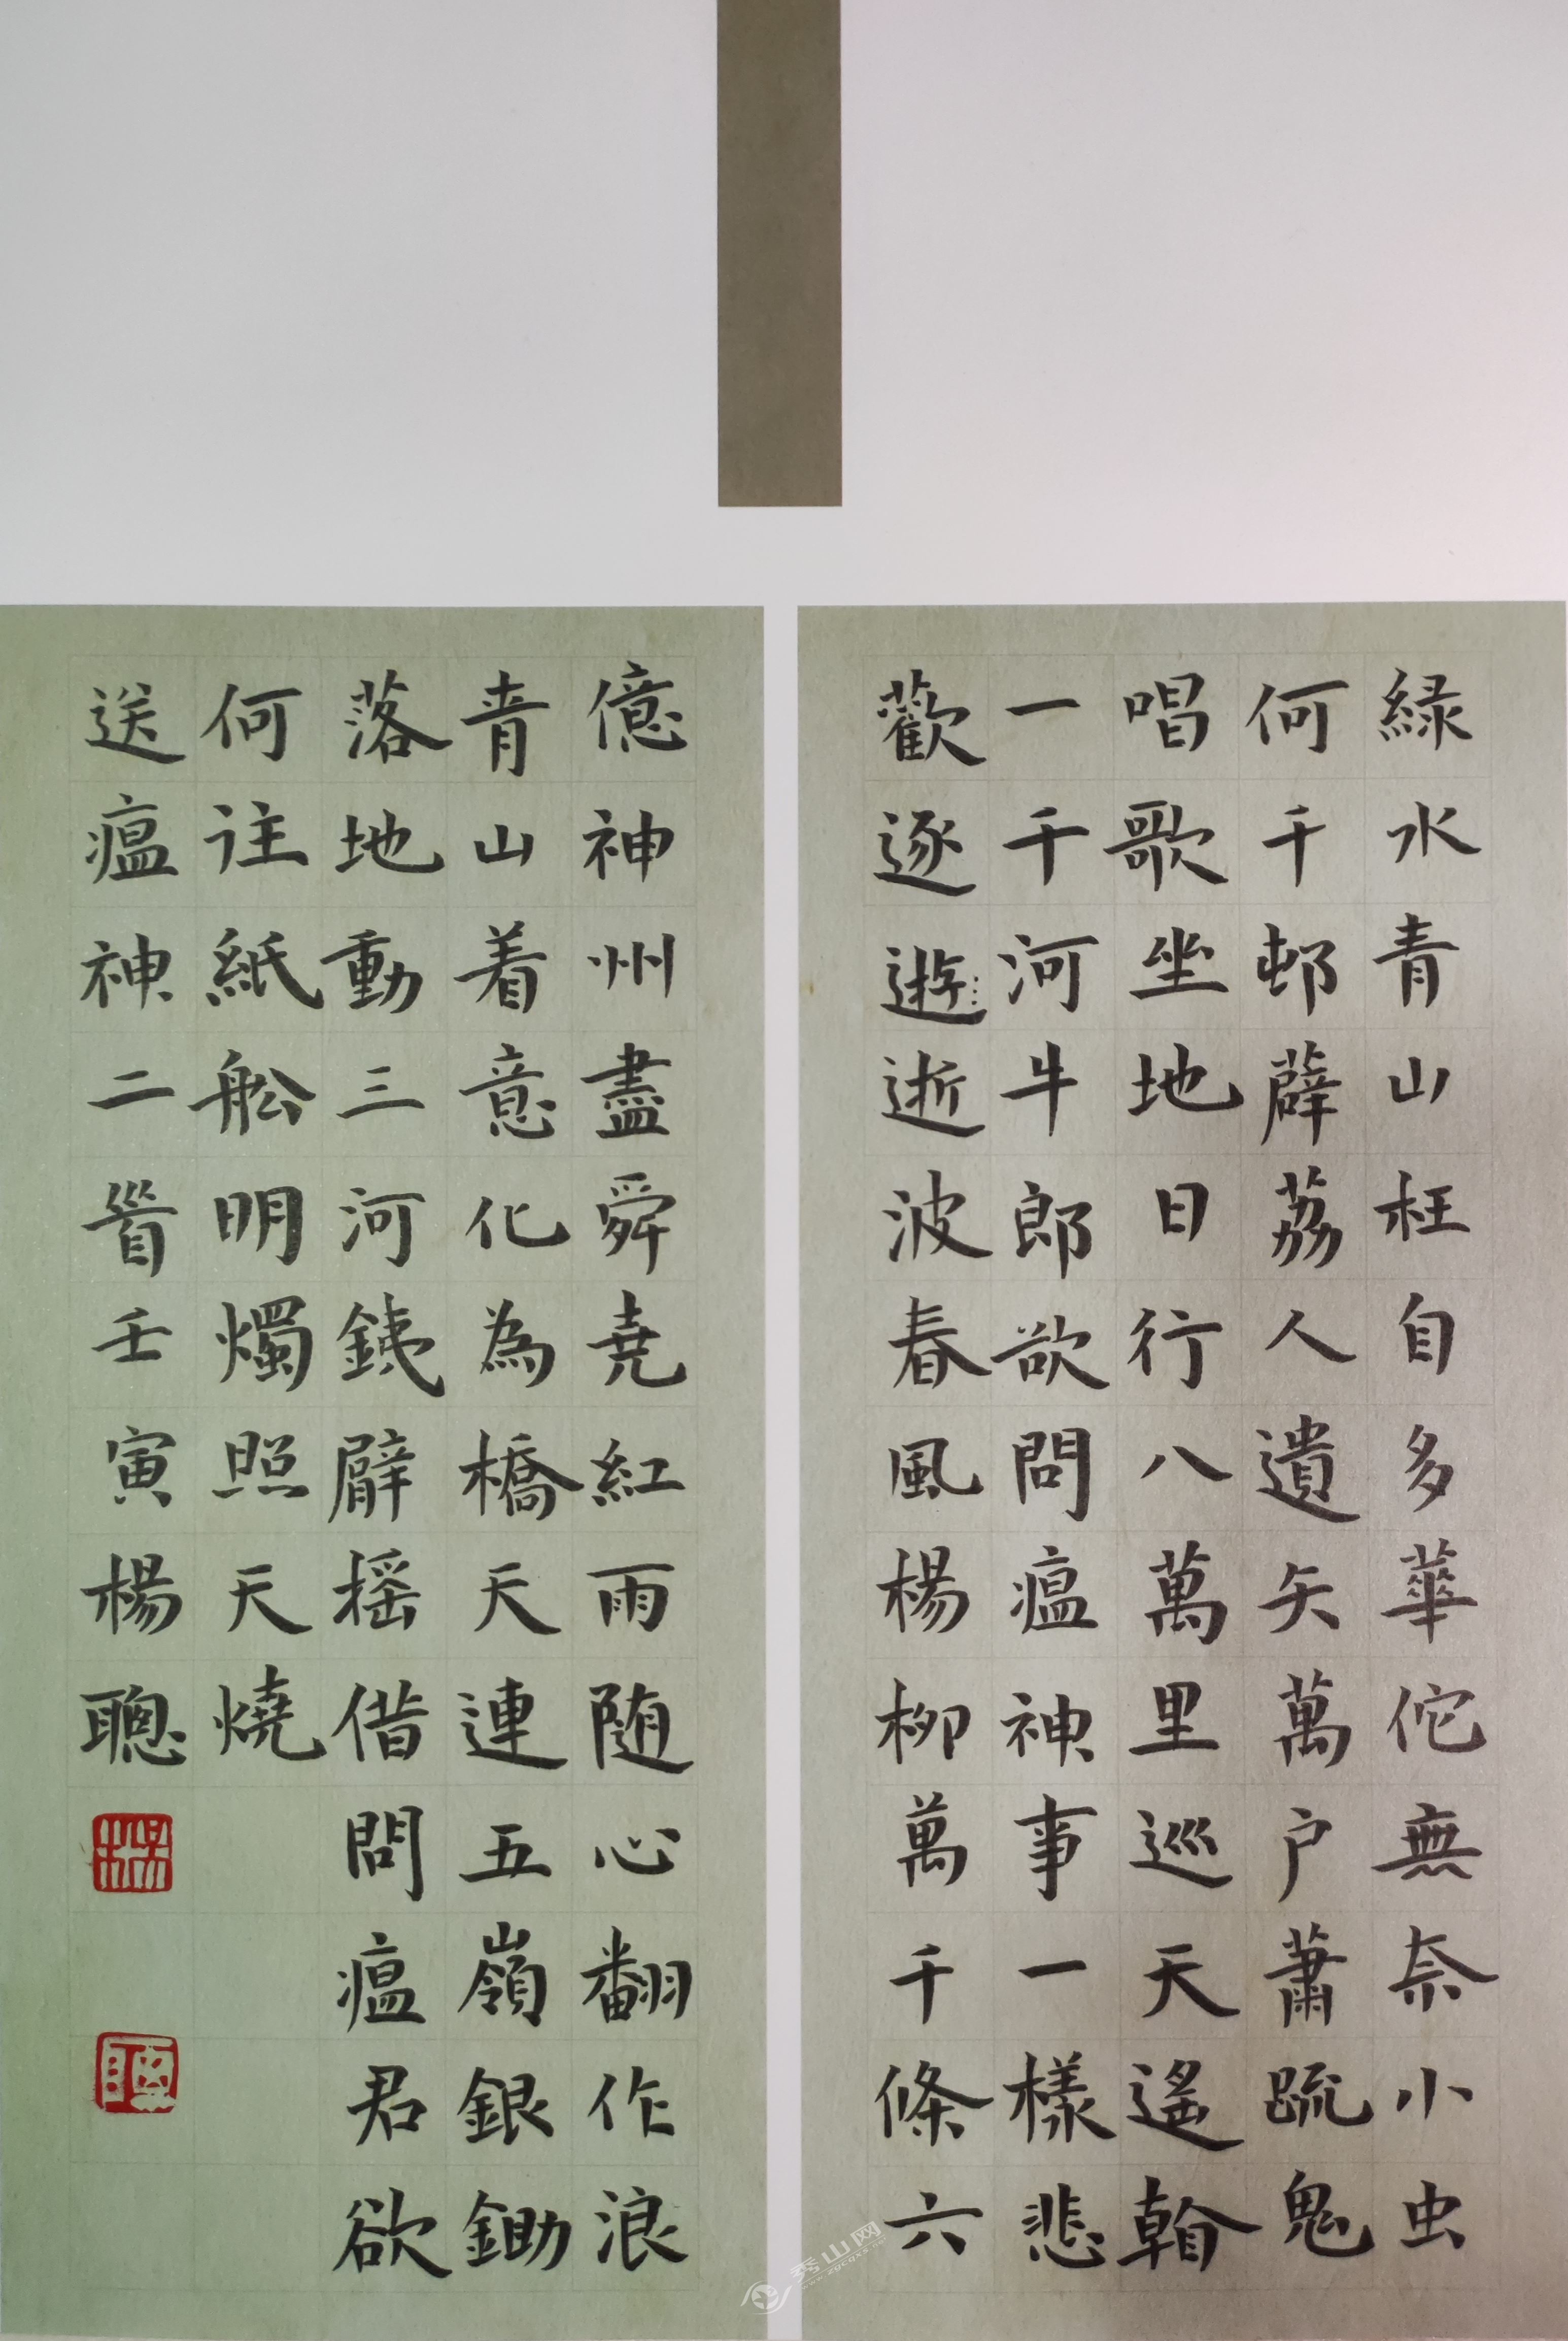 緑水青山枉自多華佗無奈小虫
何千邨薜荔人遺矢萬户蕭疏鬼
唱歌坐地日行八萬里巡天遙看
一千河牛郎欲問瘟神事一樣悲
歡逐遊逝波春風楊柳萬千條六
億神州盡舜堯紅雨随心翻作浪
青山着意化為橋天連五嶺銀鋤
落地動三河銕臂摇借問瘟君欲
何往紙船明燭照天燒
送瘟神二首壬寅楊聰
楊
聰
秀山网